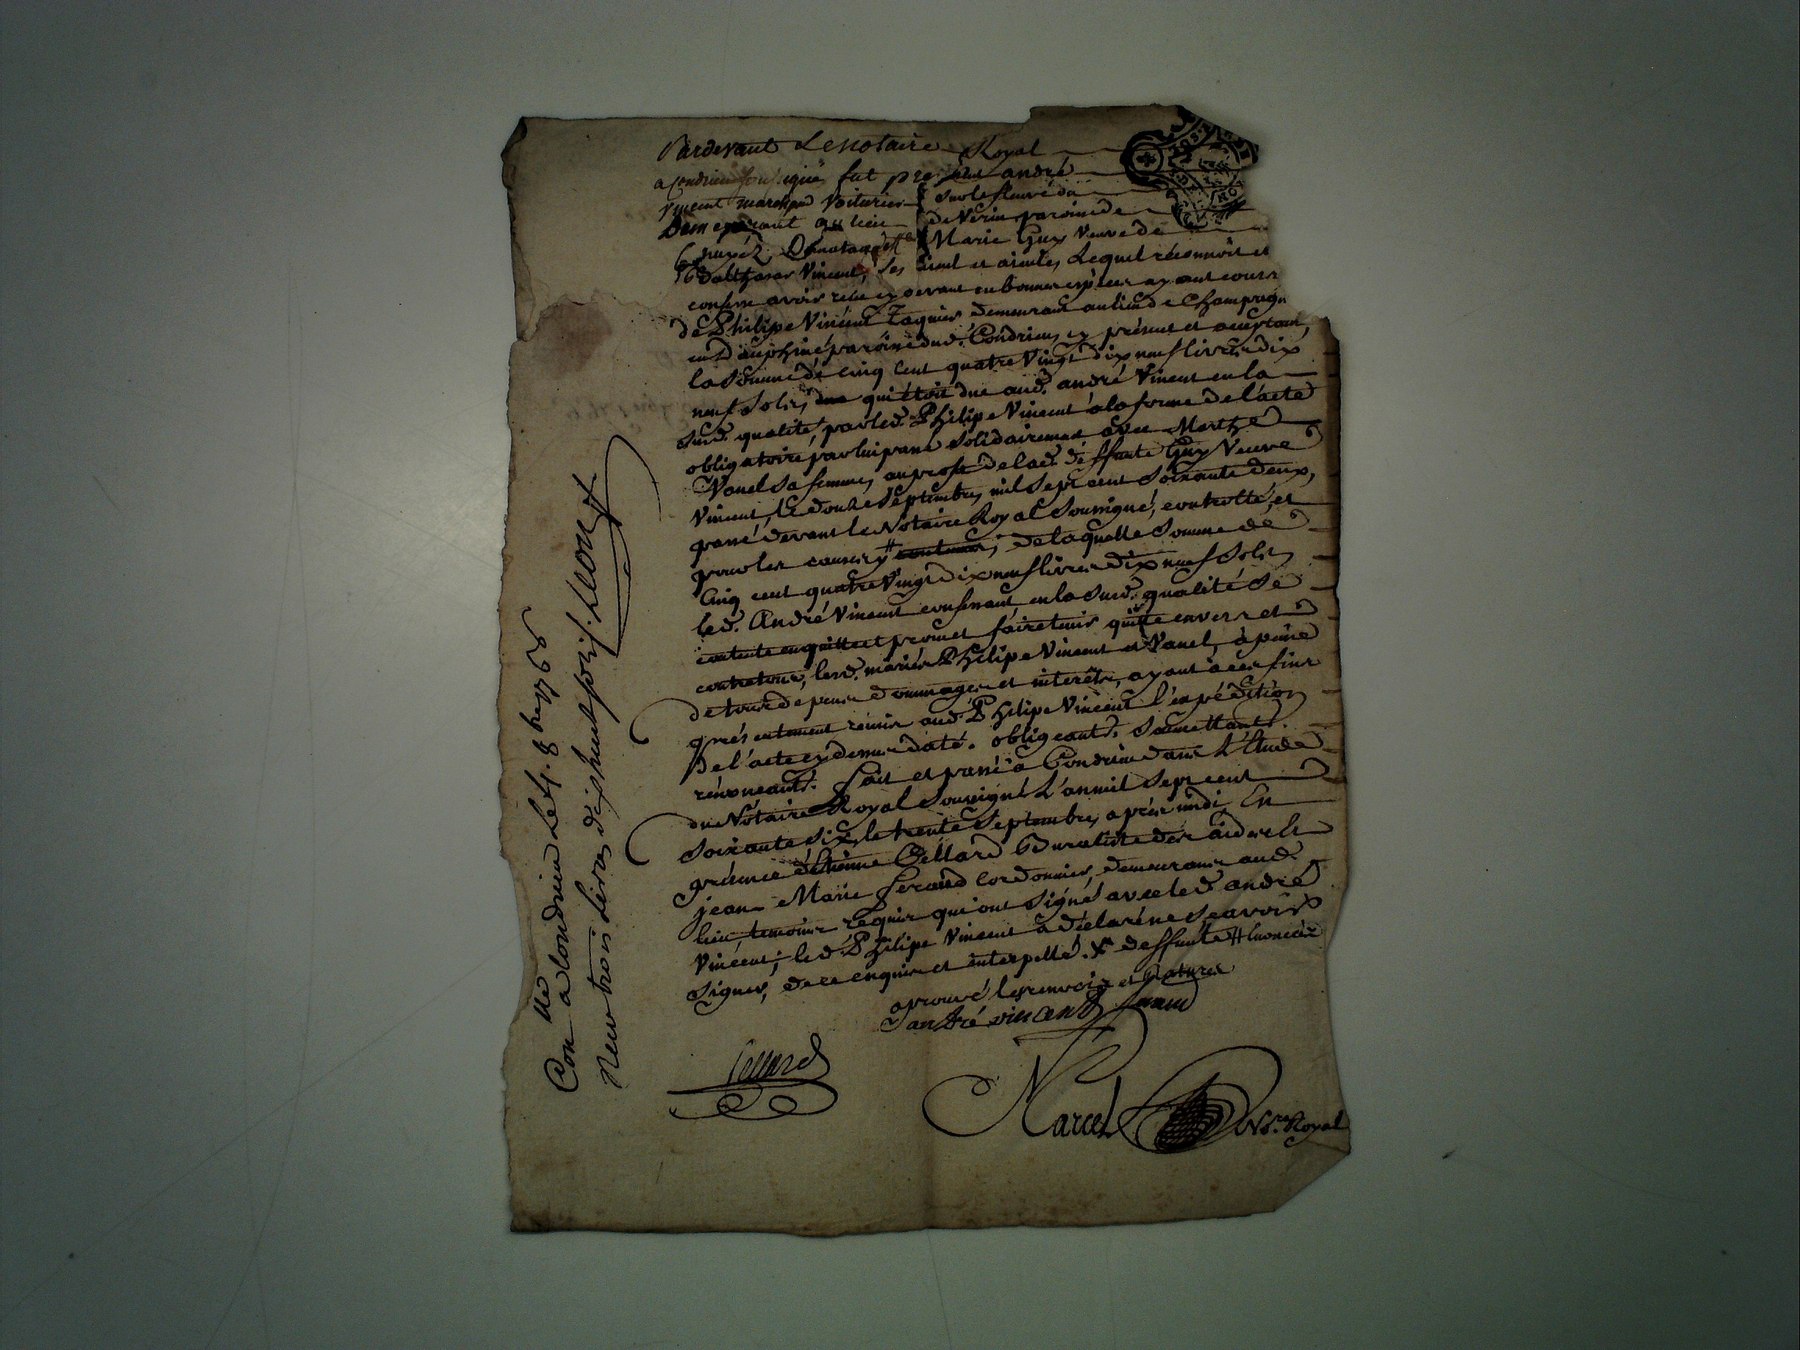 Pardevant Le notaire Royal
a Condrieu soussigné fut present andré
vincent marchand voiturier sur le fleuve du
Demeurant au lieu de Verin paroisse de
Marie Guy veuve de
Balthazar Vincent, ses et Lequel réconnoit et
confesse avoir reçu cy devant en bonnes espèces ayant cours
de Philipe Vincent demeurant au lieu de Champagn
en Dauphiné paroisse dud. Condrieu cy présent et acceptant,
la Somme de cinq cent quatre Vingt dix neuf livres dix
neuf Sols, qui étoit due aud. andré Vincent en la
Susd. qualité, par led. Philipe Vincent a la forme de l'acte
obligatoire par lui passé solidairement avec Marthe
Vanel Sa femme, au profit de lad. déffunte Guy Veuve
Vincent, le douze Septembre mil Sept cent Soixante deux,
passé devant le Notaire Royal Soussigné, controllé, et
pour les causes y contenues, de laquelle Somme de
Cinq cent quatre Vingt dix neuf livres dix neuf Sols
led. André Vincent confessant en la Susd. qualité Se
contente en quitte et promet faire tenir quitte envers et
contre tous, lesd. mariés Philipe Vincent et Vanel, à peine
de tous dépens dommages et intérêts, ayant à ces fins
présentement remis aud. Philipe Vincent l'expédition
De l'acte cy dessus daté. obligeants. Soumettants.
rénonceants. Fait et passé a Condrieu dans L'Étude
du Notaire Royal Soussigné L'an mil Sept cent
Soixante Six, le trente Septembre, après midi En
présence d'Etienne Cellard Buraliste des aides et
jean Marie Feraud Cordonnier, demeurants aud.
lieu, temoins requis qui ont Signé avec led. andré
Vincent; led. Philipe Vincent a déclaré ne Scavoir
Signer, de ce enquis et interpellé. x deffunte # énoncées
aprouvé les renvois et ratures
andré vincent Feraud
Cellard
Marcel No.re Royal
Con.lle a Condrieu Le 4. 8bre 1766
Reçu trois livres dix huit sols.